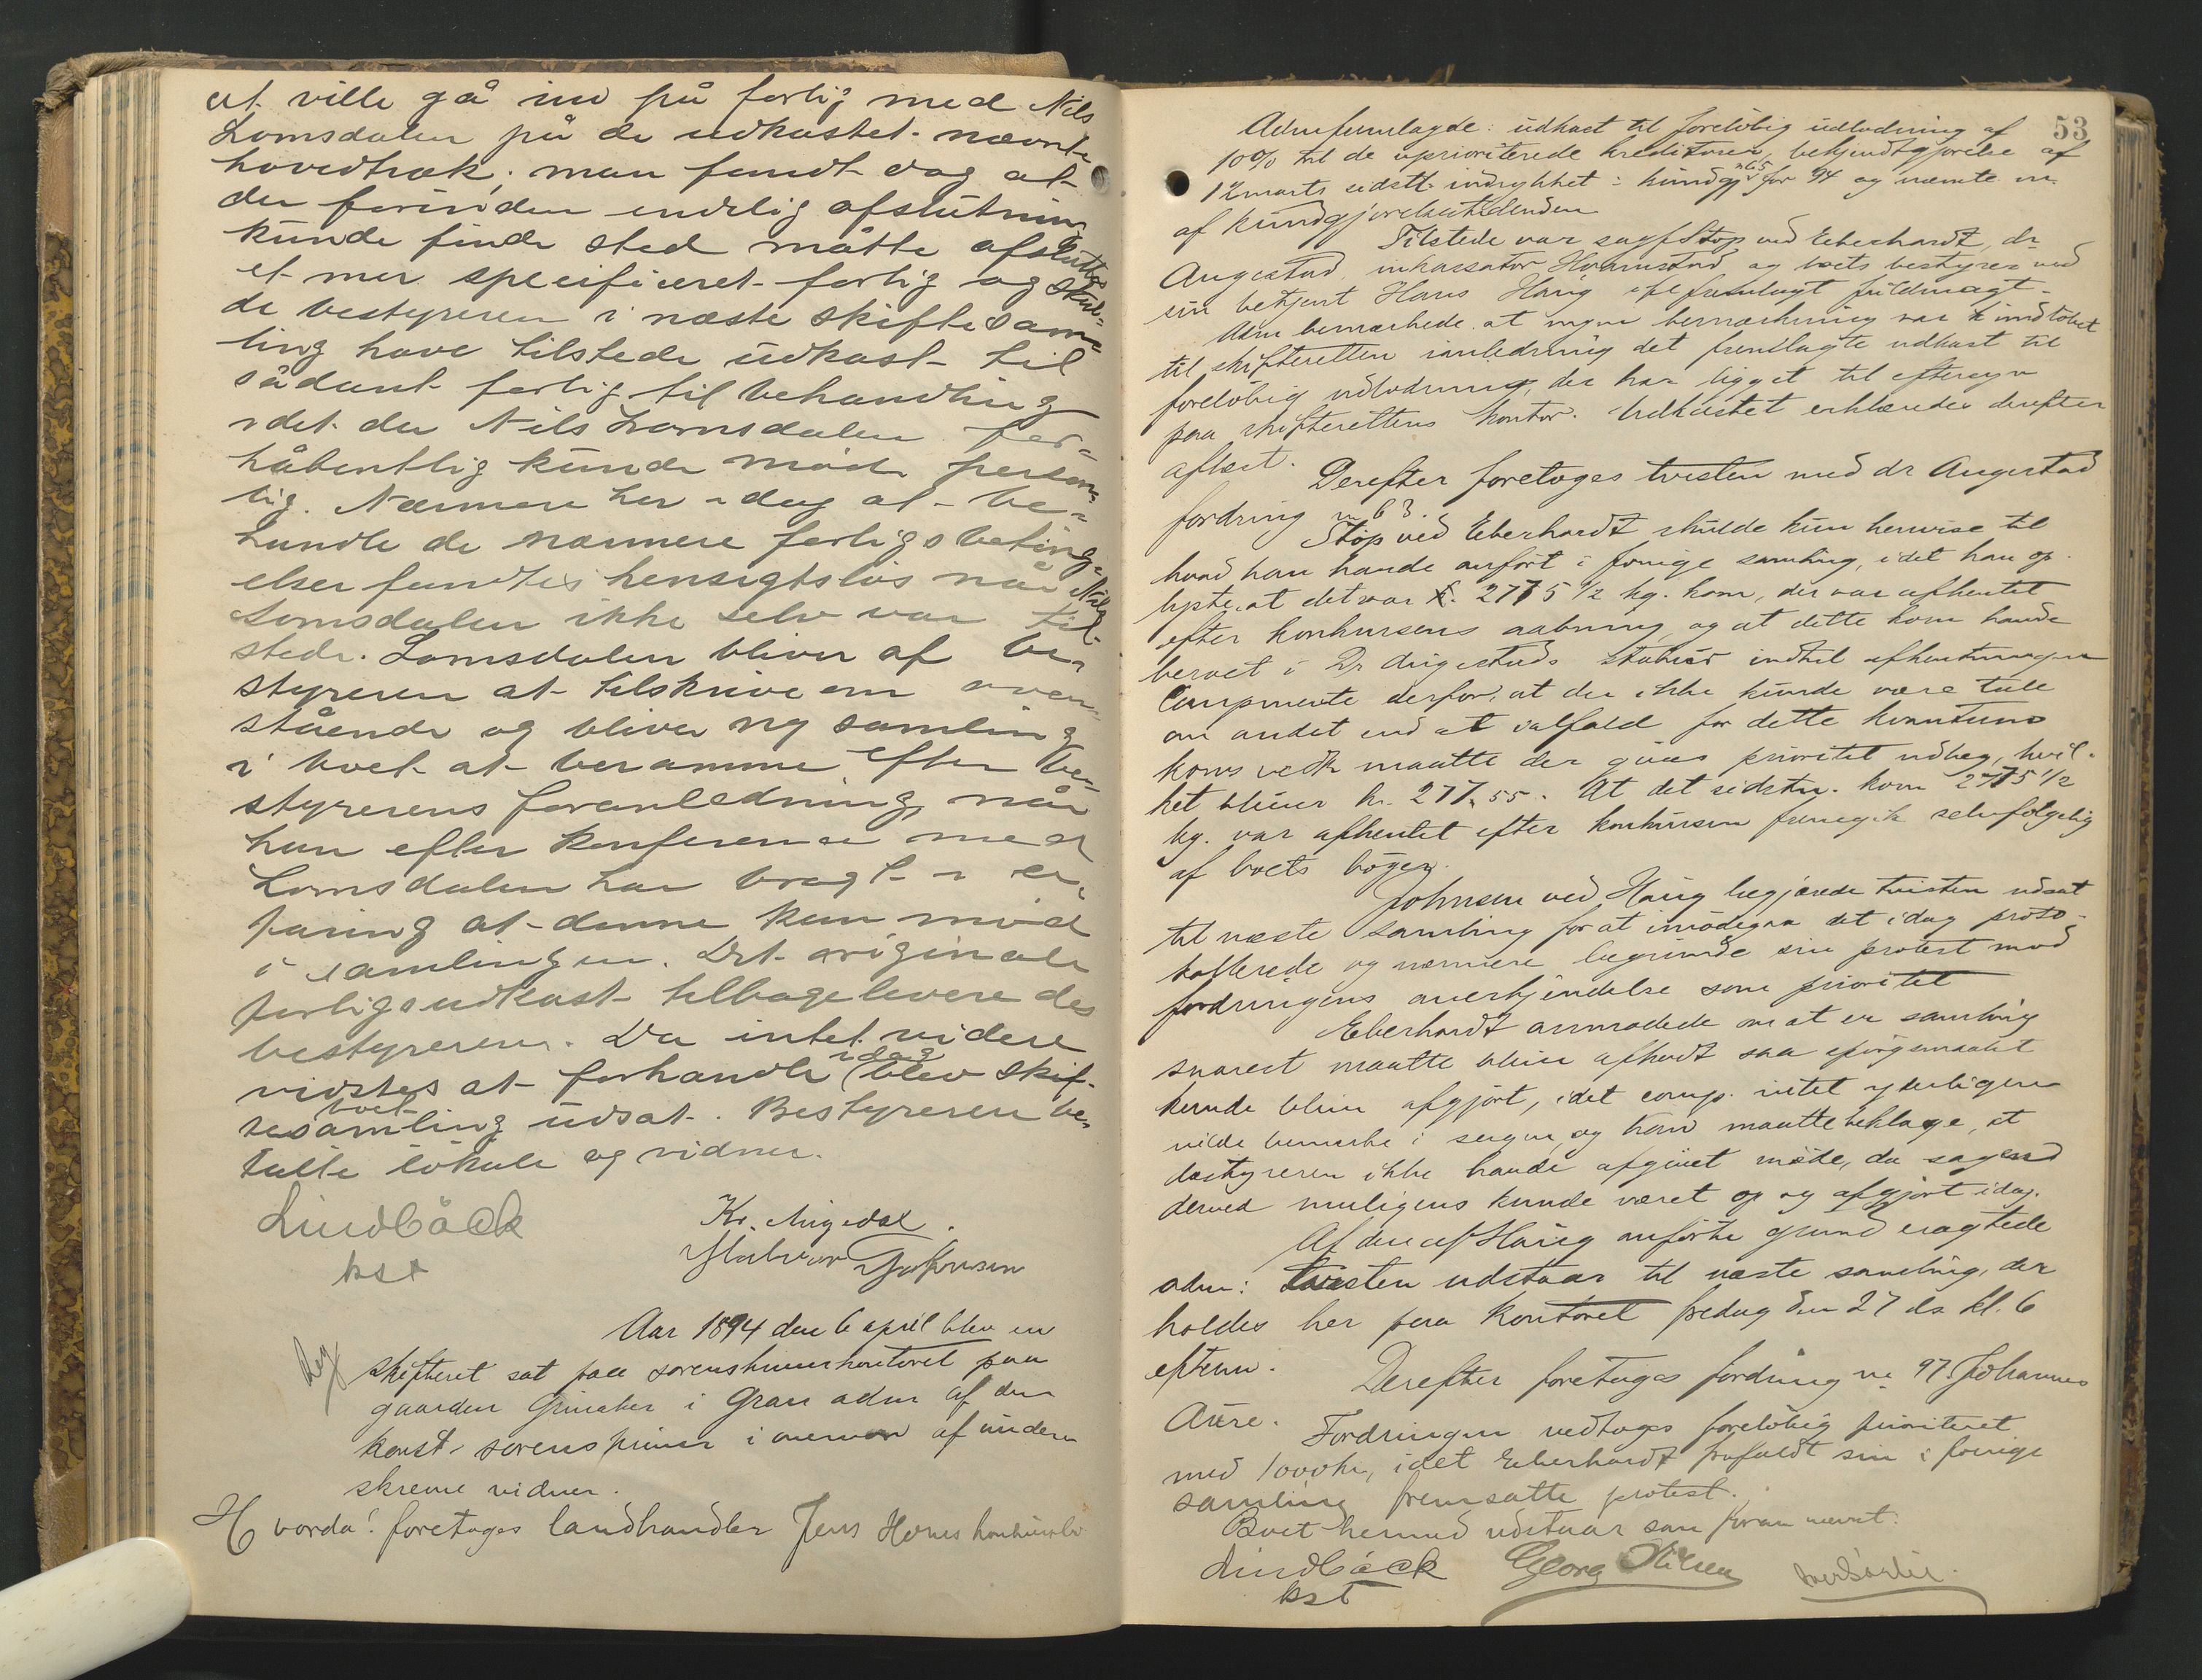 at ville gå ind på forlig med Nils
Lomsdalen på de udkastet nævnte
hovedtræk; man fandt dog at
der forinden endelig afslutning
kunde finde sted måtte afsluttes
et mer specificeret forlig og skul-
de bestyreren i næste skiftesam-
ling have tilstede udkast til
sådant forlig til behandling
idet da Nils Lomsdalen for-
håbentlig kunde møde person-
lig. Nærmere her idag at be-
handle de nærmere forligsbeting-
elser fandtes hensigtsløs når Nils
Lomsdalen ikke selv var til-
stede. Lomsdalen bliver af be-
styreren at tilskrive om oven-
stående og bliver ny samling
i boet at beramme efter be-
styrerens foranledning, når
han efter konferense med
Lomsdalen har bragt i er-
faring at denne kan møde
i samlingen. Det originale
forligsudkast tilbageleveredes
bestyreren. Da intet videre
vidstes at forhandle idag blev skif-
tesamling i boet udsat. Bestyreren be-
talte lokale og vidner.
Lindbäck
kst
Kr. Augedal.
Halvor Gulbrandsen
Aar 1894 den 6 april blev en
skifteret sat paa sorenskriverkontoret paa
gaarden Grinaker i Gran adm af den
konst. sorenskriver i overvær af under-
skrevne vidner.
Hvorda! foretoges landhandler Jens Hovs konkursbo
53
Adm fremlagde: udkast til foreløbig udlodning af
10% til de uprioriterede kreditorer, bekjendtgjørelse af
12 marts sidstl. indrykket i kundgj no 65 for 94 og nævnte nr
af kundgjørelsestidenden
Tilstede var sagf Stop ved Eberhardt, dr
Augestad, inkassator Hammerstad og boets bestyrer ved
sin betjent Hans Haug efl fremlagt fuldmagt.
Adm bemærkede at ingen bemærkning var indløbet
til skifteretten i anledning det fremlagte udkast til
foreløbig udlodning, der har ligget til eftersyn
paa skifterettens kontor. Udkastet erklæredes derefter
aflæst.
Derefter foretoges tvisten med dr Augestad
fordring no 63.
Stop ved Eberhardt skulde kun henvise til
hvad han havde anført i forrige samling, idet han op-
lyste, at det var 2775 1/2 kg. korn, der var afhentet
efter konkursens aabning, og at dette korn havde
beroet i Dr Augestads stabur indtil afhentningen
Comp mente derfor, at der ikke kunde være tale
om andet end at ialfald for dette kvantum
korns vedk maatte der gives prioritet udlæg, hvil-
ket bliver kr. 277,55. At det sidstn. korn 2775 1/2
kg. var afhentet efter konkursen fremgik selvfølgelig
af boets bøger.
Johnsen ved Haug begjærede tvisten udsat
til næste samling for at imødegaa det idag proto-
kollerede og nærmere begrunde sin protest mod
fordringens anerkjendelse som prioritet
Eberhardt anmodede om at en samling
snarest maatte blive afholdt saa spørgsmaalet
kunde blive afgjort, idet comp. intet yderligere
vilde bemærke i sagen, og han maatte beklage, at
bestyreren ikke havde afgivet møde, da sagen
derved muligens kunde været op og afgjort idag.
Af den af Haug anførte grund eragtede
adm: Tvisten udstaar til næste samling, der
holdes her paa kontoret fredag den 27 ds kl. 6
efterm.
Derefter foretoges fordring no 97 Johannes
Aure.
Fordringen vedtages foreløbig prioriteret
med 1000 kr, idet Eberhardt frafaldt sin i forrige
samling fremsatte protest.
Boet hermed udstaar som foran nævnt.
Lindbäck
kst
Georg Nilsen